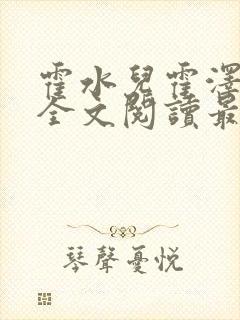 霍水兒霍澤
全文閱讀最
琴聲憂悅